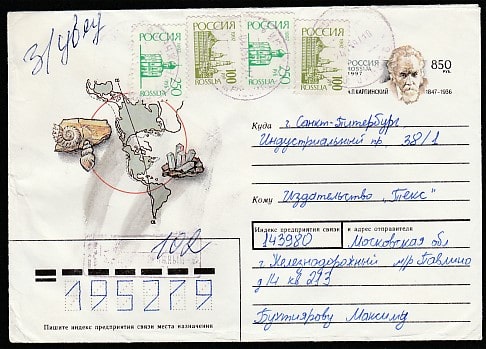 З/увед
РОССИЯ
250
ROSSIJA
РОССИЯ
100
ROSSIJA
РОССИЯ
250
ROSSIJA
РОССИЯ
100
ROSSIJA
РОССИЯ
ROSSIJA
1997
850
РУБ.
А.П. КАРПИНСКИЙ 1847-1936
Куда г. Санкт-Питербург
Индустриальный пр 38/1
Кому Издательство „Текс"
Индекс предприятия связи и адрес отправителя
143980 Московская обл
г. Железнодорожный м/р Павлино
д 14 кв 293
Бухтиярову Максиму
102
195279
Пишите индекс предприятия связи места назначения